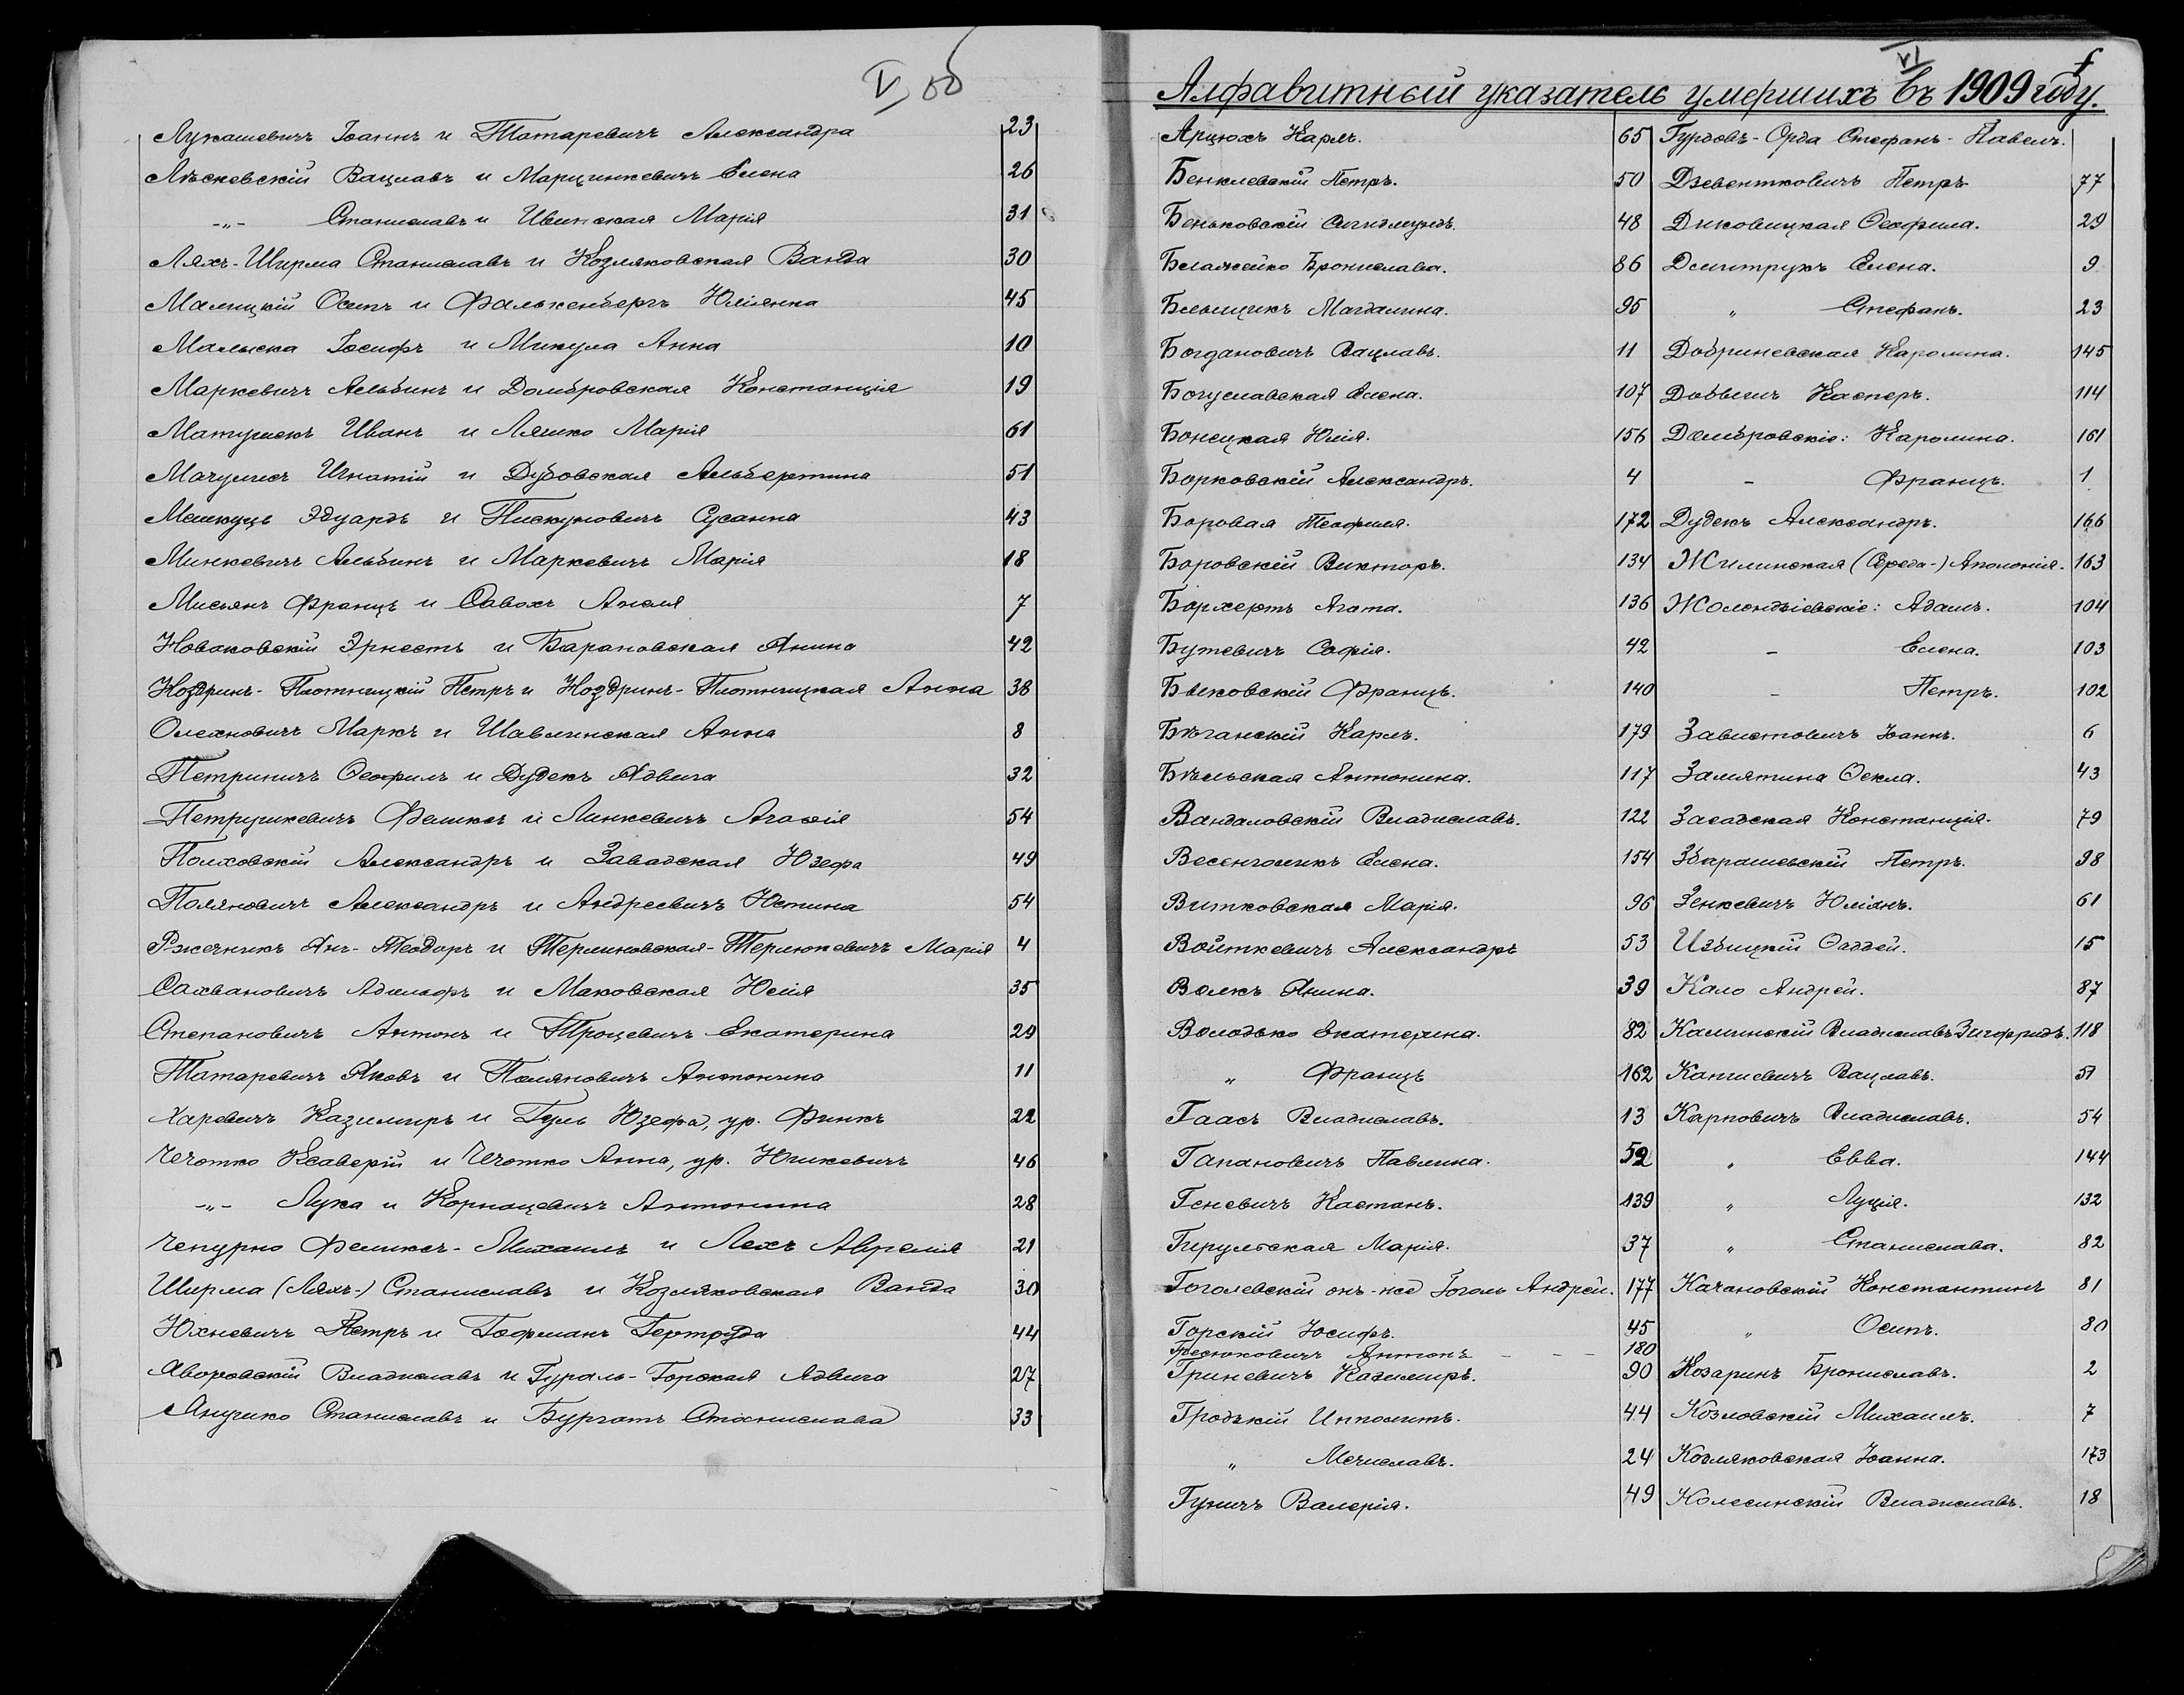 V об
Лукашевичъ Іоаннъ и Татаревичъ Александра 23
Лѣсневскій Вацлавъ и Марцинкевичъ Елена 26
-„- Станиславъ и Ивинская Марія 31
Ляхъ-Ширма Станиславъ и Козляковская Ванда 30
Малицкій Осипъ и Фалькенбергъ Юліанна 45
Малыска Іосифъ и Микула Анна 10
Маркевичъ Альбинъ и Домбровская Констанція 19
Матушекъ Иванъ и Ляшко Марія 61
Мачулисъ Игнатій и Дубовская Альбертина 51
Мешкуць Эдуардъ и Пискуновичъ Сусанна 43
Минкевичъ Альбинъ и Маркевичъ Марія 18
Мисьянъ Францъ и Савохъ Анеля 7
Новаковскій Эрнестъ и Барановская Янина 42
Ноздринъ-Плотницкій Петръ и Ноздринъ-Плотницкая Анна 38
Олехновичъ Маркъ и Шавлинская Анна 8
Петриничъ Ѳеофилъ и Дудекъ Ядвига 32
Петрушкевичъ Феликсъ и Линкевичъ Агафія 54
Полховскій Александръ и Завадская Юзефа 49
Поляновичъ Александръ и Андреевичъ Юстина 54
Ржечникъ Янъ-Теодоръ и Терлиновская-Терлюкевичъ Марія 4
Сахвановичъ Адольфъ и Маковская Юлія 35
Степановичъ Антонъ и Троцевичъ Екатерина 29
Татаревичъ Яковъ и Поляновичъ Антонина 11
Харевичъ Казимиръ и Гуль Юзефа, ур. Финкъ 22
Чечотко Ксаверій и Чечотко Анна, ур. Юшкевичъ 46
-„- Лука и Корнацевичъ Антонина 28
Чепурно Феликсъ-Михаилъ и Лехъ Аврелія 21
Ширма (Ляхъ-) Станиславъ и Козляковская Ванда 30
Юхневичъ Петръ и Гофманъ Гертруда 44
Яворовскій Владиславъ и Гураль-Горская Ядвига 27
Янушко Станиславъ и Бургатъ Станислава 33
VI
Алфавитный указатель умершихъ въ 1909 году.
Арцюхъ Карлъ. 65
Бенклевскій Петръ. 50
Беньковскій Сигизмундъ. 48
Блажейко Бронислава. 86
Блыщикъ Магдалина. 95
Богдановичъ Вацлавъ. 11
Богуславская Елена. 107
Бонецкая Юлія. 156
Борковскій Александръ. 4
Боровая Теофиля. 172
Боровскій Викторъ. 134
Борхертъ Агата. 136
Бутевичъ Софія. 42
Быковскій Францъ. 140
Бѣганскій Карлъ. 179
Бѣльская Антонина. 117
Вандаловскій Владиславъ. 122
Весенголикъ Елена. 154
Витковская Марія. 96
Войткевичъ Александръ 53
Волкъ Янина. 39
Володько Екатерина. 82
„ Францъ 162
Гаасъ Владиславъ. 13
Гапановичъ Павлина. 52
Геневичъ Каетанъ. 139
Гирульская Марія. 37
Гоголевскій онъ-же Гоголь Андрей. 177
Горскій Іосифъ. 45
Гресюковичъ Антонъ - - - 180
Гриневичъ Казимиръ. 90
Гродзкій Ипполитъ. 44
„ Мечиславъ. 24
Гуничъ Валерія. 49
Гурдовъ-Орда Стефанъ-Павелъ.
Дзевентковичъ Петръ 77
Диковицкая Ѳеофила. 29
Дмитрукъ Елена. 9
„ Стефанъ. 23
Добриневская Каролина. 145
Довбышъ Касперъ. 114
Домбровскіе: Каролина. 161
- Францъ. 1
Дудекъ Александръ. 166
Жилинская (Середа-) Аполонія. 163
Жолендзіевскіе: Адамъ. 104
- Елена. 103
- Петръ. 102
Завистовичъ Іоаннъ. 6
Замятина Ѳекла. 43
Засадская Констанція. 79
Збирашевскій Петръ. 98
Зенкевичъ Юліанъ. 61
Избицкій Ѳаддей. 15
Кало Андрей. 87
Калинскій Владиславъ Зигфридъ. 118
Капшевичъ Вацлавъ. 51
Карповичъ Владиславъ. 54
„ Евва. 144
„ Луція. 132
„ Станислава. 82
Качановскій Константинъ 81
„ Осипъ. 80
Козаринъ Брониславъ. 2
Козловскій Михаилъ. 7
Козляковская Іоанна. 173
Колесинскій Владиславъ. 18